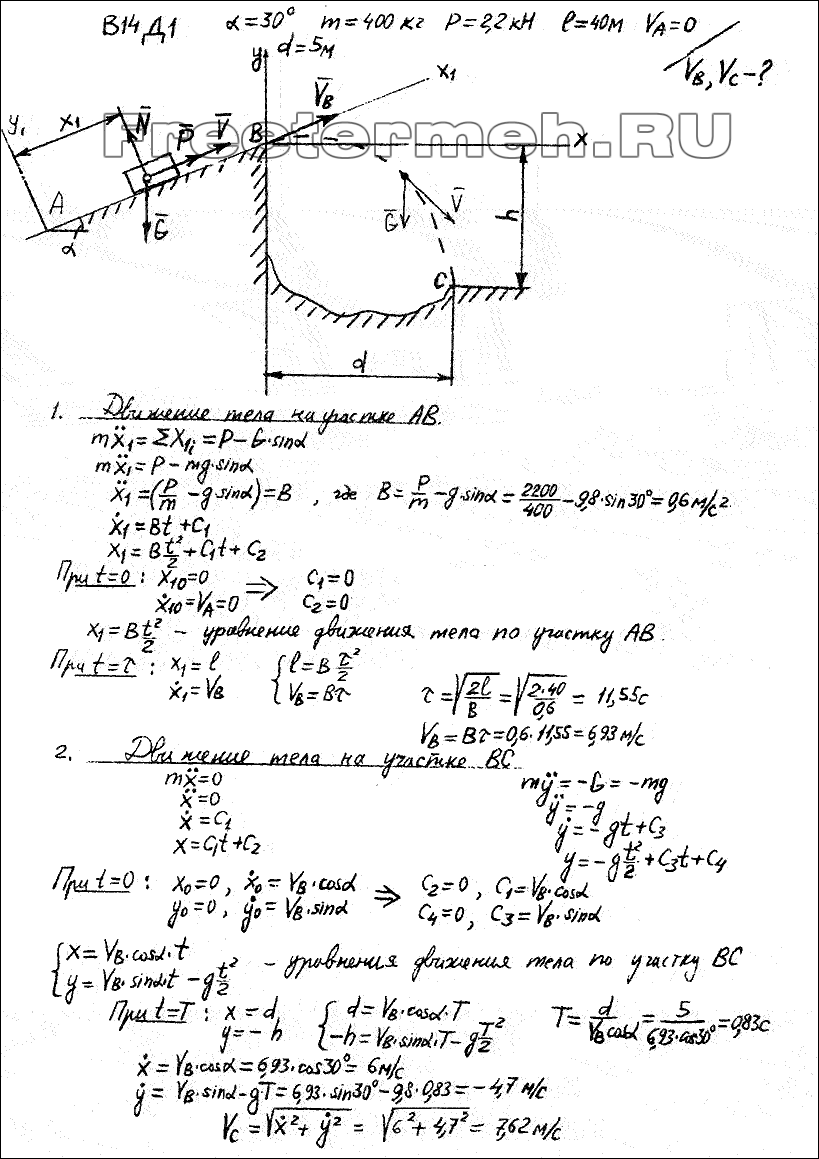 В14Д1 α=30° m=400кг P=2,2кН l=40м V_A=0
d=5м
V_B, V_C-?
y
x₁
V̄_B
y₁
x₁
N̄
P̄
V̄
B
x
Frestermeh.RU
A
Ḡ
α
Ḡ
V̄
h
C
d
1. Движение тела на участке АВ.
mẍ₁=ΣX₁ᵢ=P-G·sinα
mẍ₁=P-mg·sinα
ẍ₁=(P/m-g sinα)=B, где B=P/m-g·sinα=2200/400-9,8·sin30°=0,6м/с²
ẋ₁=Bt+C₁
x₁=Bt²/2+C₁t+C₂
При t=0: x₁₀=0 ⇒ C₁=0
ẋ₁₀=V_A=0 C₂=0
x₁=Bt²/2 - уравнение движения тела по участку АВ.
При t=τ: x₁=l { l=Bτ²/2
ẋ₁=V_B V_B=Bτ τ=√(2l/B)=√(2·40/0,6)=11,55с
V_B=Bτ=0,6·11,55=6,93м/с
2. Движение тела на участке ВС
mẍ=0 mÿ=-G=-mg
ẍ=0 ÿ=-g
ẋ=C₁ ẏ=-gt+C₃
x=C₁t+C₂ y=-gt²/2+C₃t+C₄
При t=0: x₀=0, ẋ₀=V_B·cosα ⇒ C₂=0, C₁=V_B·cosα
y₀=0, ẏ₀=V_B·sinα C₄=0, C₃=V_B·sinα
{ x=V_B·cosα·t
y=V_B·sinα·t-gt²/2 - уравнения движения тела по участку ВС
При t=T: x=d, { d=V_B·cosα·T T=d/(V_B cosα)=5/(6,93·cos30°)=0,83с
y=-h -h=V_B·sinα·T-gT²/2
ẋ=V_B·cosα=6,93·cos30°=6м/с
ẏ=V_B·sinα-gT=6,93·sin30°-9,8·0,83=-4,7м/с
V_C=√(ẋ²+ẏ²)=√(6²+4,7²)=7,62м/с